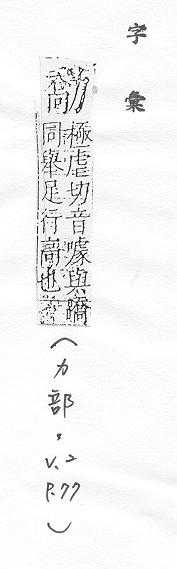 字彙
勪
極虐切音噱與蹻
同舉足行高也
(力部, v.2 P.77)